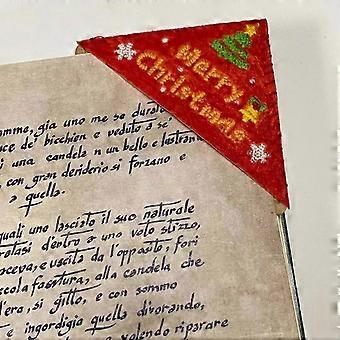 Merry
Christmas
già uno me se durato
de' bicchieri e veduto a se'
di una candela n un bello e lustrante
con gran deriderio si forzano e
a quella.
quali uno lasciato il suo naturale
dentro a uno volo stizzo,
e uscita da l'opposito, fori
fossatura, alla candela che
l'era, si gittò, e con sommo
e ingordigia quella divorando,
volendo riparare